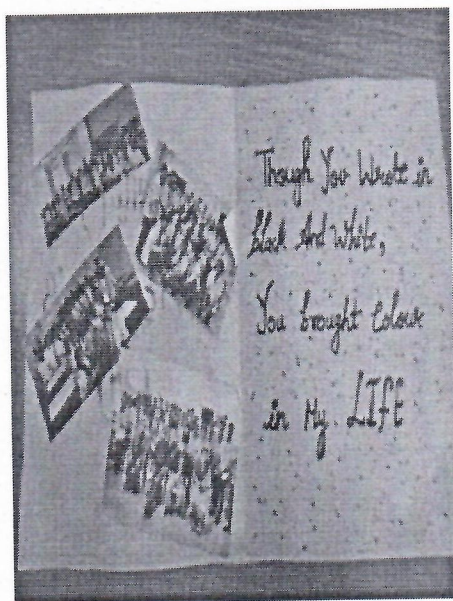 Though You Wrote in
Black And White,
You brought Colour
in My LIFE